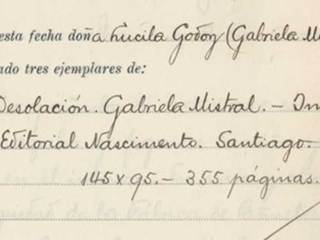 esta fecha doña Lucila Godoy (Gabriela M
ado tres ejemplares de:
Desolación. Gabriela Mistral. - In
Editorial Nascimento. Santiago.
145 x 95. - 355 páginas.